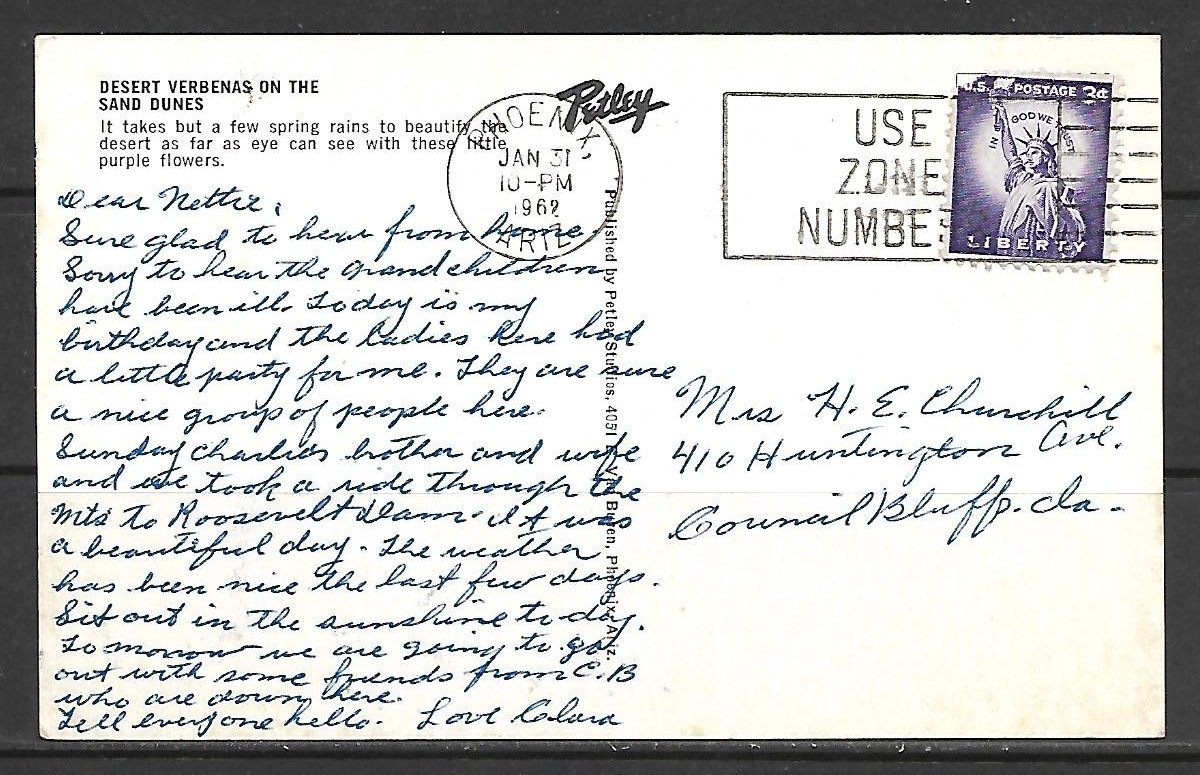 DESERT VERBENAS ON THE
SAND DUNES
It takes but a few spring rains to beautify the
desert as far as eye can see with these little
purple flowers.
Petley
PHOENIX,
JAN 31
10-PM
1962
ARIZ.
USE
ZONE
NUMBE
U.S. POSTAGE 3¢
IN GOD WE TRUST
LIBERTY
Published by Petley Studios, 4051 E. Van Buren, Phoenix, Ariz.
Dear Nettie,
Sure glad to hear from home.
Sorry to hear the grandchildren
have been ill. Today is my
birthday and the ladies here had
a little party for me. They are sure
a nice group of people here.
Sunday Charlies brother and wife
and we took a ride through the
Mts to Roosevelt Dam. It was
a beautiful day. The weather
has been nice the last few days.
Sit out in the sunshine to-day.
Tomorrow we are going to go
out with some friends from C.B
who are down here.
Tell everyone hello. Love Clara
Mrs H. E. Churchill
410 Huntington Ave.
Council Bluffs. Ia.